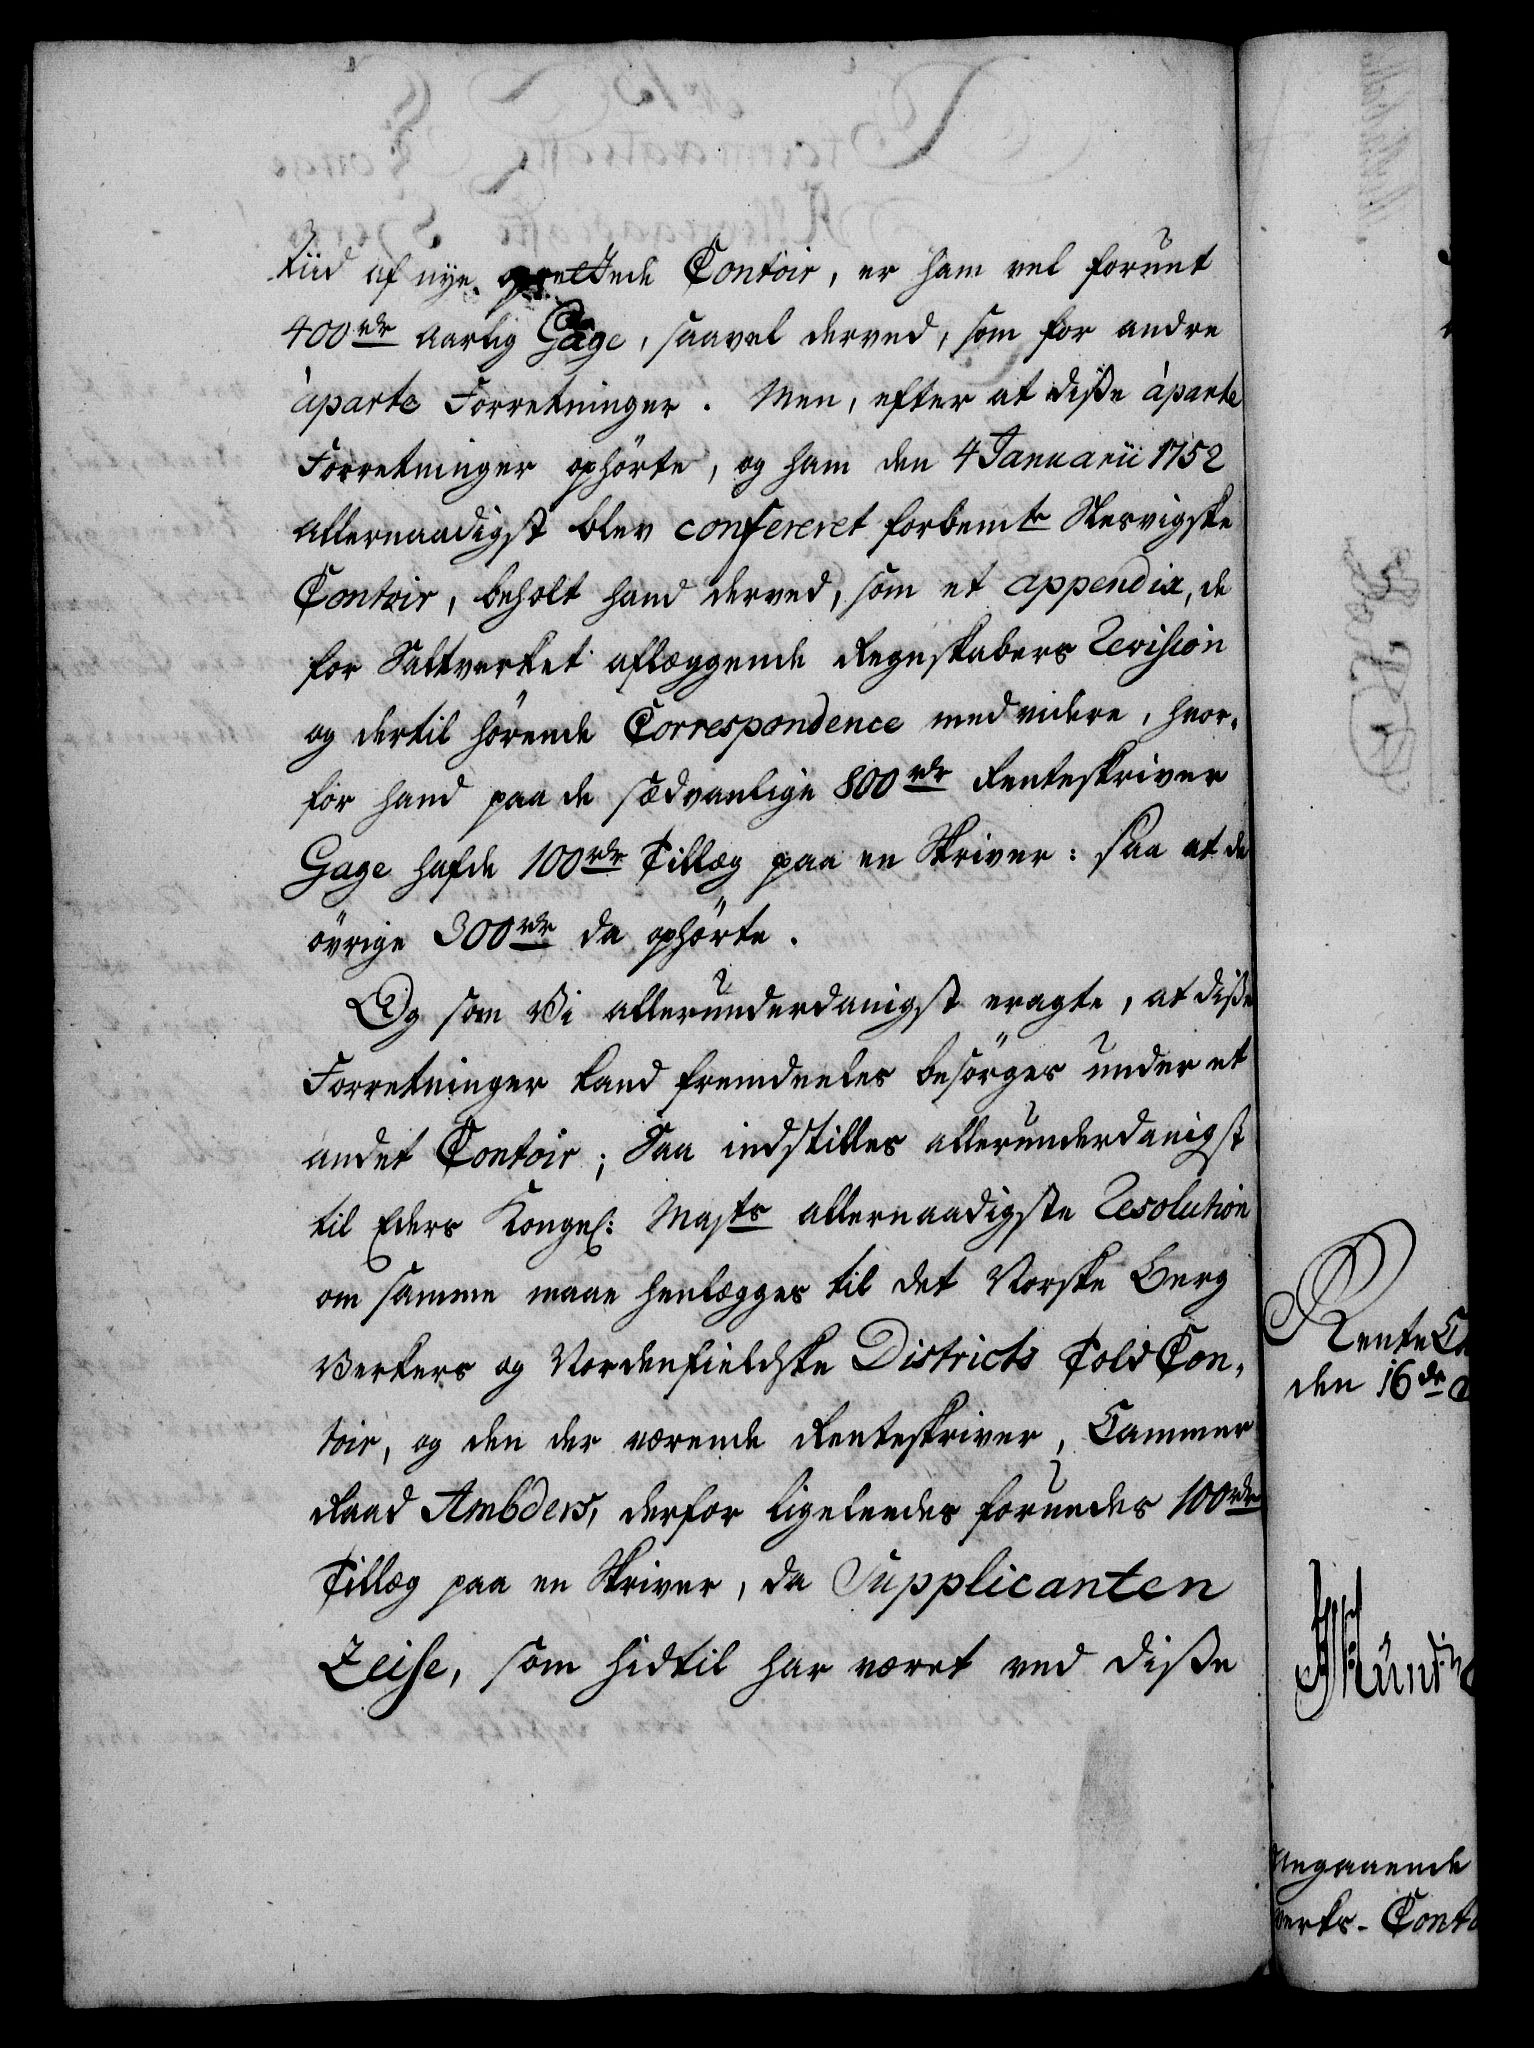 tiid af nye oprettede Contoir, er ham vel forunt
400 rdr aarlig Gage, saavel derved, som for andre
àparte Forretninger. Men, efter at diße àparte
Forretninger ophörte, og ham den 4 Januarii 1752
allernaadigst blev confereret forbemte Slesvigske
Contoir, beholt hand derved, som et appendix, de
for Saltverket aflæggende Regnskabers Revision
og dertil hörende Correspondence med videre, hvor-
for hand paa de sædvanlige 800 rdr Renteskriver
Gage hafde 100 rdr Tillæg paa en Skriver: saa at de
övrige 300 rdr da ophörte.
Og som Vi allerunderdanigst eragte, at diße
Forretninger kand fremdeeles besörges under et
andet Contoir; Saa indstilles allerunderdanigst
til Eders Kongel: Maysts allernaadigste Resolution
om samme maae henlægges til det Norske Berg
Verkers og Nordenfieldske Districts Told Con-
toir, og den der værende Renteskriver, Cammer
Raad Ambders, derfor ligeleedes forundes 100 rdr
Tillæg paa en Skriver, da Supplicanten
Zeise, som hidtil har været ved diße
Rente C
den 16de
Angaaende
Verks-Conto